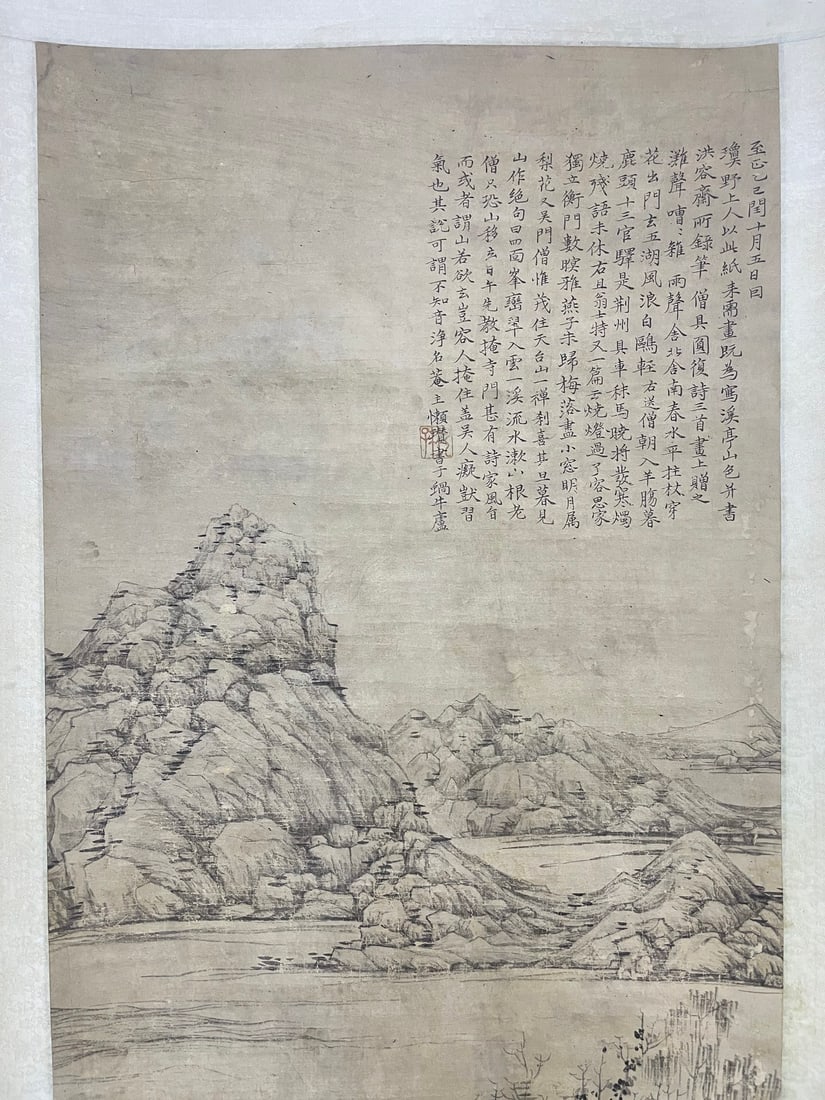 至正乙巳閏十月五日回
瓊野上人以此紙来需畫既為寫溪亭山色并書
洪容齋所錄筆僧具圓復詩三首畫上贈之
灘聲嘈〻雜雨聲舍北舍南春水平拄杖穿
花出門去五湖風浪白鷗輕右送僧朝入羊腸暮
鹿頭十三官驛是荆州具車秣馬曉將發寒燭
燒殘語未休右且翁士特又一篇云燒燈過了客思家
獨立衡門數暝雅燕子未歸梅落盡小窓明月属
梨花又吴門僧惟茂住天台山一禪刹喜其旦暮見
山作絶句曰四面峯巒翠入雲一溪流水漱山根老
僧只恐山移去日午先教掩寺門甚有詩家風旨
而或者謂山若欲去豈容人掩住蓋吴人癡獃習
氣也其說可謂不知音淨名菴主懶瓚書于蝸牛廬